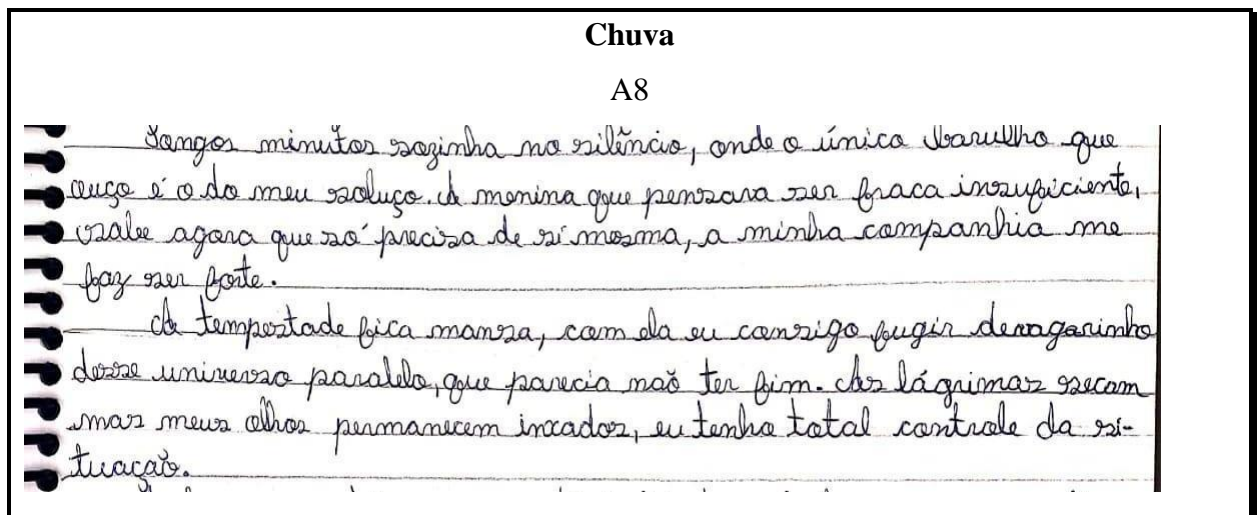 Chuva
A8
Longos minutos sozinha no silêncio, onde o único barulho que
ouço é o do meu soluço. A menina que pensara ser fraca insuficiente,
sabe agora que só precisa de si mesma, a minha companhia me
faz ser forte.
A tempestade fica mansa, com ela eu consigo fugir devagarinho
desse universo paralelo, que parecia não ter fim. As lágrimas secam
mas meus olhos permanecem inxados, eu tenho total controle da si-
tuação.